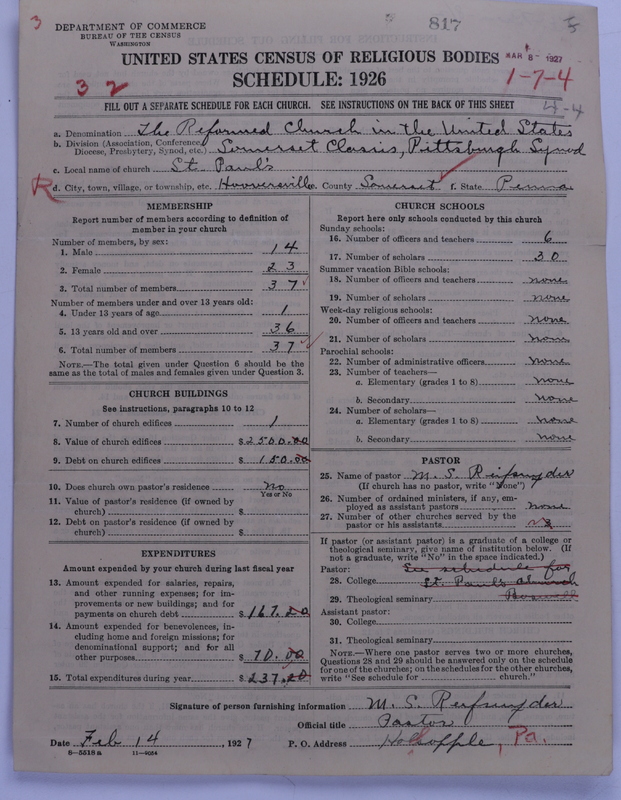 3
DEPARTMENT OF COMMERCE
BUREAU OF THE CENSUS
WASHINGTON
817
UNITED STATES CENSUS OF RELIGIOUS BODIES
MAR 8- 1927
SCHEDULE: 1926
3 2
1-7-4
FILL OUT A SEPARATE SCHEDULE FOR EACH CHURCH. SEE INSTRUCTIONS ON THE BACK OF THIS SHEET
a. Denomination The Reformed Church in the United States
b. Division (Association, Conference, Diocese, Presbytery, Synod, etc.) Somerset Classis, Pittsburgh Synod
c. Local name of church St. Paul's
R d. City, town, village, or township, etc. Hooversville e. County Somerset f. State Penna
MEMBERSHIP
Report number of members according to definition of
member in your church
Number of members, by sex:
1. Male 14
2. Female 23
3. Total number of members 37
Number of members under and over 13 years old:
4. Under 13 years of age 1
5. 13 years old and over 36
6. Total number of members 37
NOTE.—The total given under Question 6 should be
same as the total of males and females given under Question 3.
CHURCH BUILDINGS
See instructions, paragraphs 10 to 12
7. Number of church edifices 1
8. Value of church edifices $2500.00
9. Debt on church edifices $150.00
10. Does church own pastor's residence? no
Yes or No
11. Value of pastor's residence (if owned by
church) $
12. Debt on pastor's residence (if owned by
church) $
EXPENDITURES
Amount expended by your church during last fiscal year
13. Amount expended for salaries, repairs,
and other running expenses; for im-
provements or new buildings; and for
payments on church debt $167.20
14. Amount expended for benevolences, in-
cluding home and foreign missions; for
denominational support; and for all
other purposes $70.00
15. Total expenditures during year $237.20
CHURCH SCHOOLS
Report here only schools conducted by this church
Sunday schools:
16. Number of officers and teachers 6
17. Number of scholars 30
Summer vacation Bible schools:
18. Number of officers and teachers none
19. Number of scholars none
Week-day religious schools:
20. Number of officers and teachers none
21. Number of scholars none
Parochial schools:
22. Number of administrative officers none
23. Number of teachers—
a. Elementary (grades 1 to 8) none
b. Secondary none
24. Number of scholars—
a. Elementary (grades 1 to 8) none
b. Secondary none
PASTOR
25. Name of pastor M. S. Reifsnyder
(If church has no pastor, write "None")
26. Number of ordained ministers, if any, em-
ployed as assistant pastors none
27. Number of other churches served by the
pastor or his assistants 3
If pastor (or assistant pastor) is a graduate of a college or
theological seminary, give name of institution below. (If
not a graduate, write "No" in the space indicated.)
Pastor: See schedule for
28. College St. Paul's church
29. Theological seminary Boswell
Assistant pastor:
30. College
31. Theological seminary
NOTE.—Where one pastor serves two or more churches,
Questions 28 and 29 should be answered only on the schedule
for one of the churches; on the schedules for the other churches,
write "See schedule for church."
Signature of person furnishing information M. S. Reifsnyder
Official title Pastor
Date Feb 14, 1927 P. O. Address Holsopple, Pa.
8—5518a 11—9084